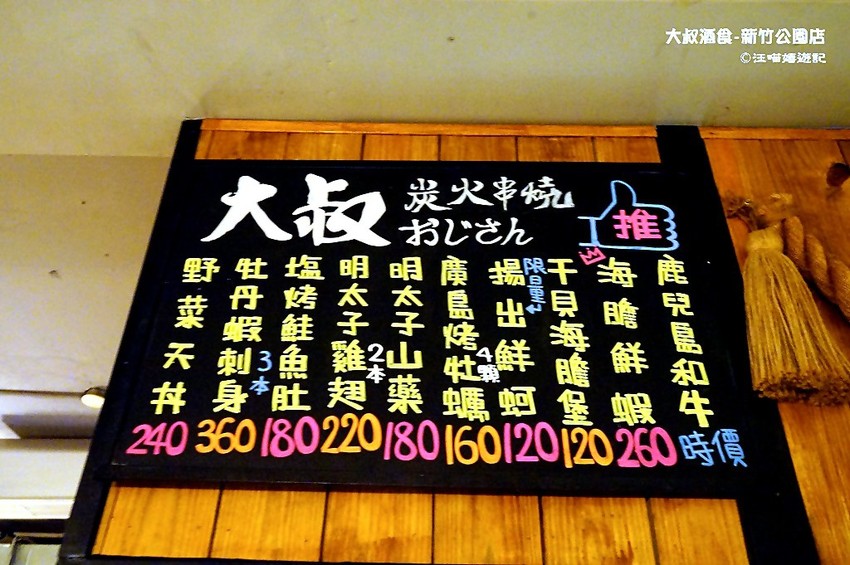 大叔酒食-新竹公園店
©汪喵嬉遊記
大叔
炭火串燒
おじさん
推
鹿兒島和牛 時價
海膽鮮蝦 260
干貝海膽堡 120
限量
揚出鮮蚵 120
廣島烤牡蠣 4顆 160
明太子山藥 180
明太子雞翅 2本 220
塩烤鮭魚肚 180
牡丹蝦刺身 3本 360
野菜天丼 240